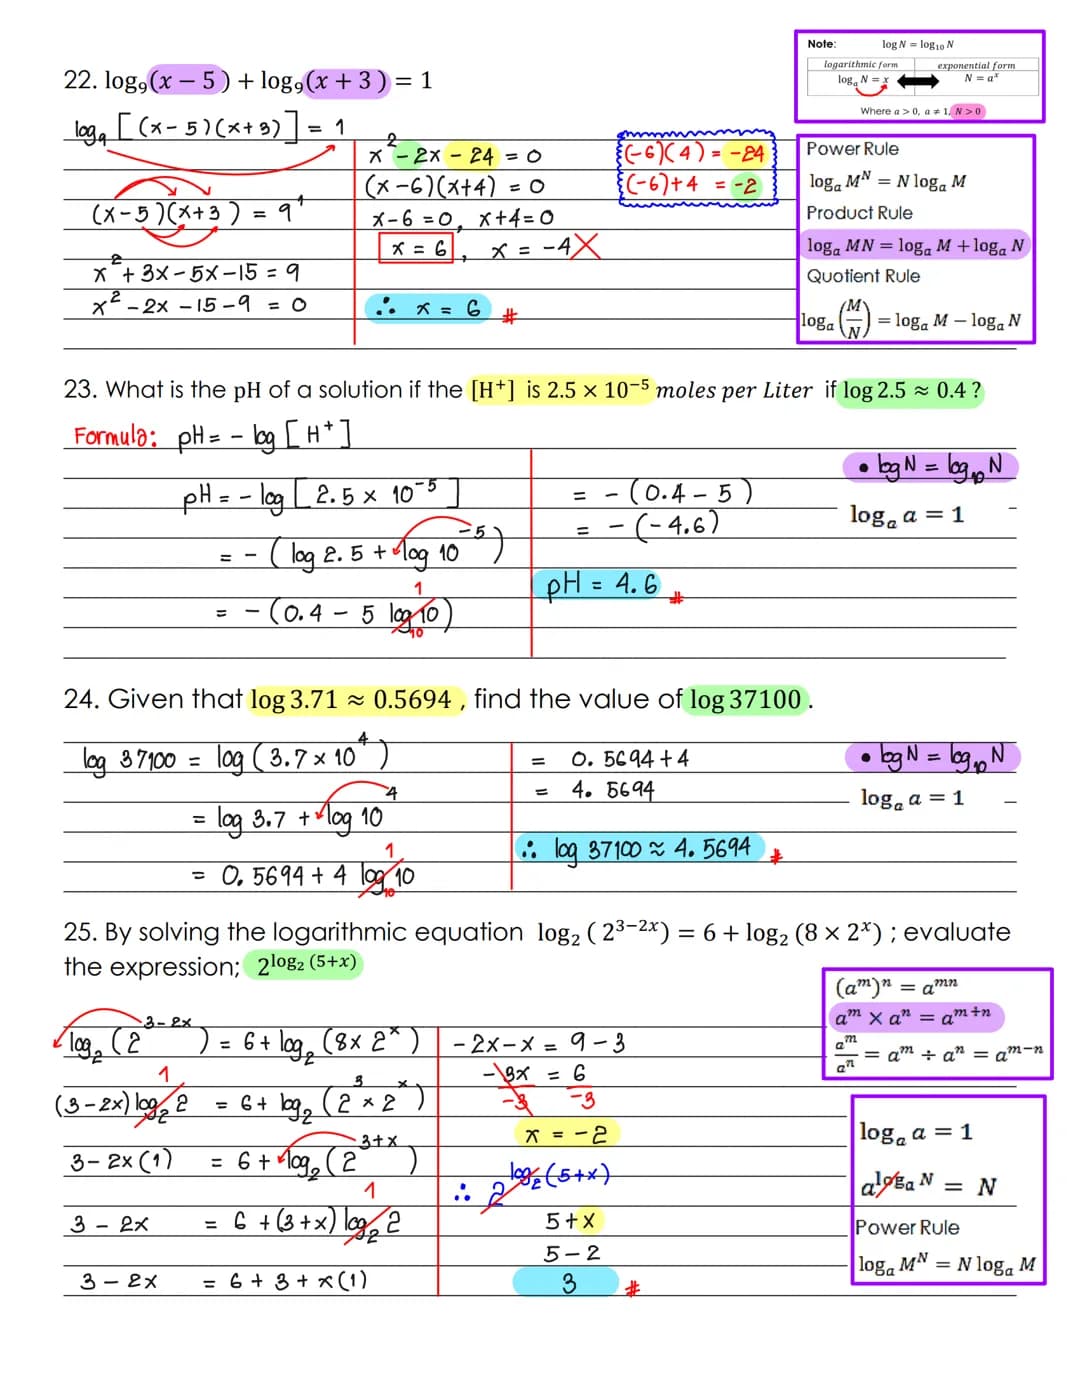 Note: log N = log₁₀ N
logarithmic form exponential form
logₐ N = x N = aˣ
Where a > 0, a ≠ 1, N > 0
22. log₉(x − 5) + log₉(x + 3) = 1
log₉ [(x-5)(x+3)] = 1
(x-5)(x+3) = 9¹
x² + 3x - 5x - 15 = 9
x² - 2x - 15 - 9 = 0
x² - 2x - 24 = 0
(x-6)(x+4) = 0
x-6 = 0, x+4 = 0
x = 6, x = -4 X
∴ x = 6 #
(-6)(4) = -24
(-6)+4 = -2
Power Rule
logₐ Mᴺ = N logₐ M
Product Rule
logₐ MN = logₐ M + logₐ N
Quotient Rule
logₐ (M/N) = logₐ M − logₐ N
23. What is the pH of a solution if the [H⁺] is 2.5 × 10⁻⁵ moles per Liter if log 2.5 ≈ 0.4 ?
Formula: pH = - log [H⁺]
pH = - log [2.5 × 10⁻⁵]
= - (log 2.5 + log 10⁻⁵)
= - (0.4 - 5 log₁₀ 10) 1
= - (0.4 - 5)
= - (-4.6)
pH = 4.6 #
• log N = log₁₀ N
logₐ a = 1
24. Given that log 3.71 ≈ 0.5694 , find the value of log 37100 .
log 37100 = log (3.7 × 10⁴)
= log 3.7 + log 10⁴
= 0.5694 + 4 log₁₀ 10 1
= 0.5694 + 4
= 4.5694
∴ log 37100 ≈ 4.5694 #
• log N = log₁₀ N
logₐ a = 1
25. By solving the logarithmic equation log₂ ( 2³⁻²ˣ) = 6 + log₂ (8 × 2ˣ) ; evaluate
the expression; 2^(log₂ (5+x))
log₂ (2³⁻²ˣ) = 6 + log₂ (8 × 2ˣ)
(3-2x) log₂ 2 1 = 6 + log₂ (2³ × 2ˣ)
3 - 2x (1) = 6 + log₂ (2³⁺ˣ)
3 - 2x = 6 + (3+x) log₂ 2 1
3 - 2x = 6 + 3 + x(1)
-2x - x = 9 - 3
-3x = 6
-3 -3
x = -2
∴ 2^(log₂ (5+x))
5 + x
5 - 2
3 #
(aᵐ)ⁿ = aᵐⁿ
aᵐ × aⁿ = aᵐ⁺ⁿ
aᵐ/aⁿ = aᵐ ÷ aⁿ = aᵐ⁻ⁿ
logₐ a = 1
a^(logₐ N) = N
Power Rule
logₐ Mᴺ = N logₐ M